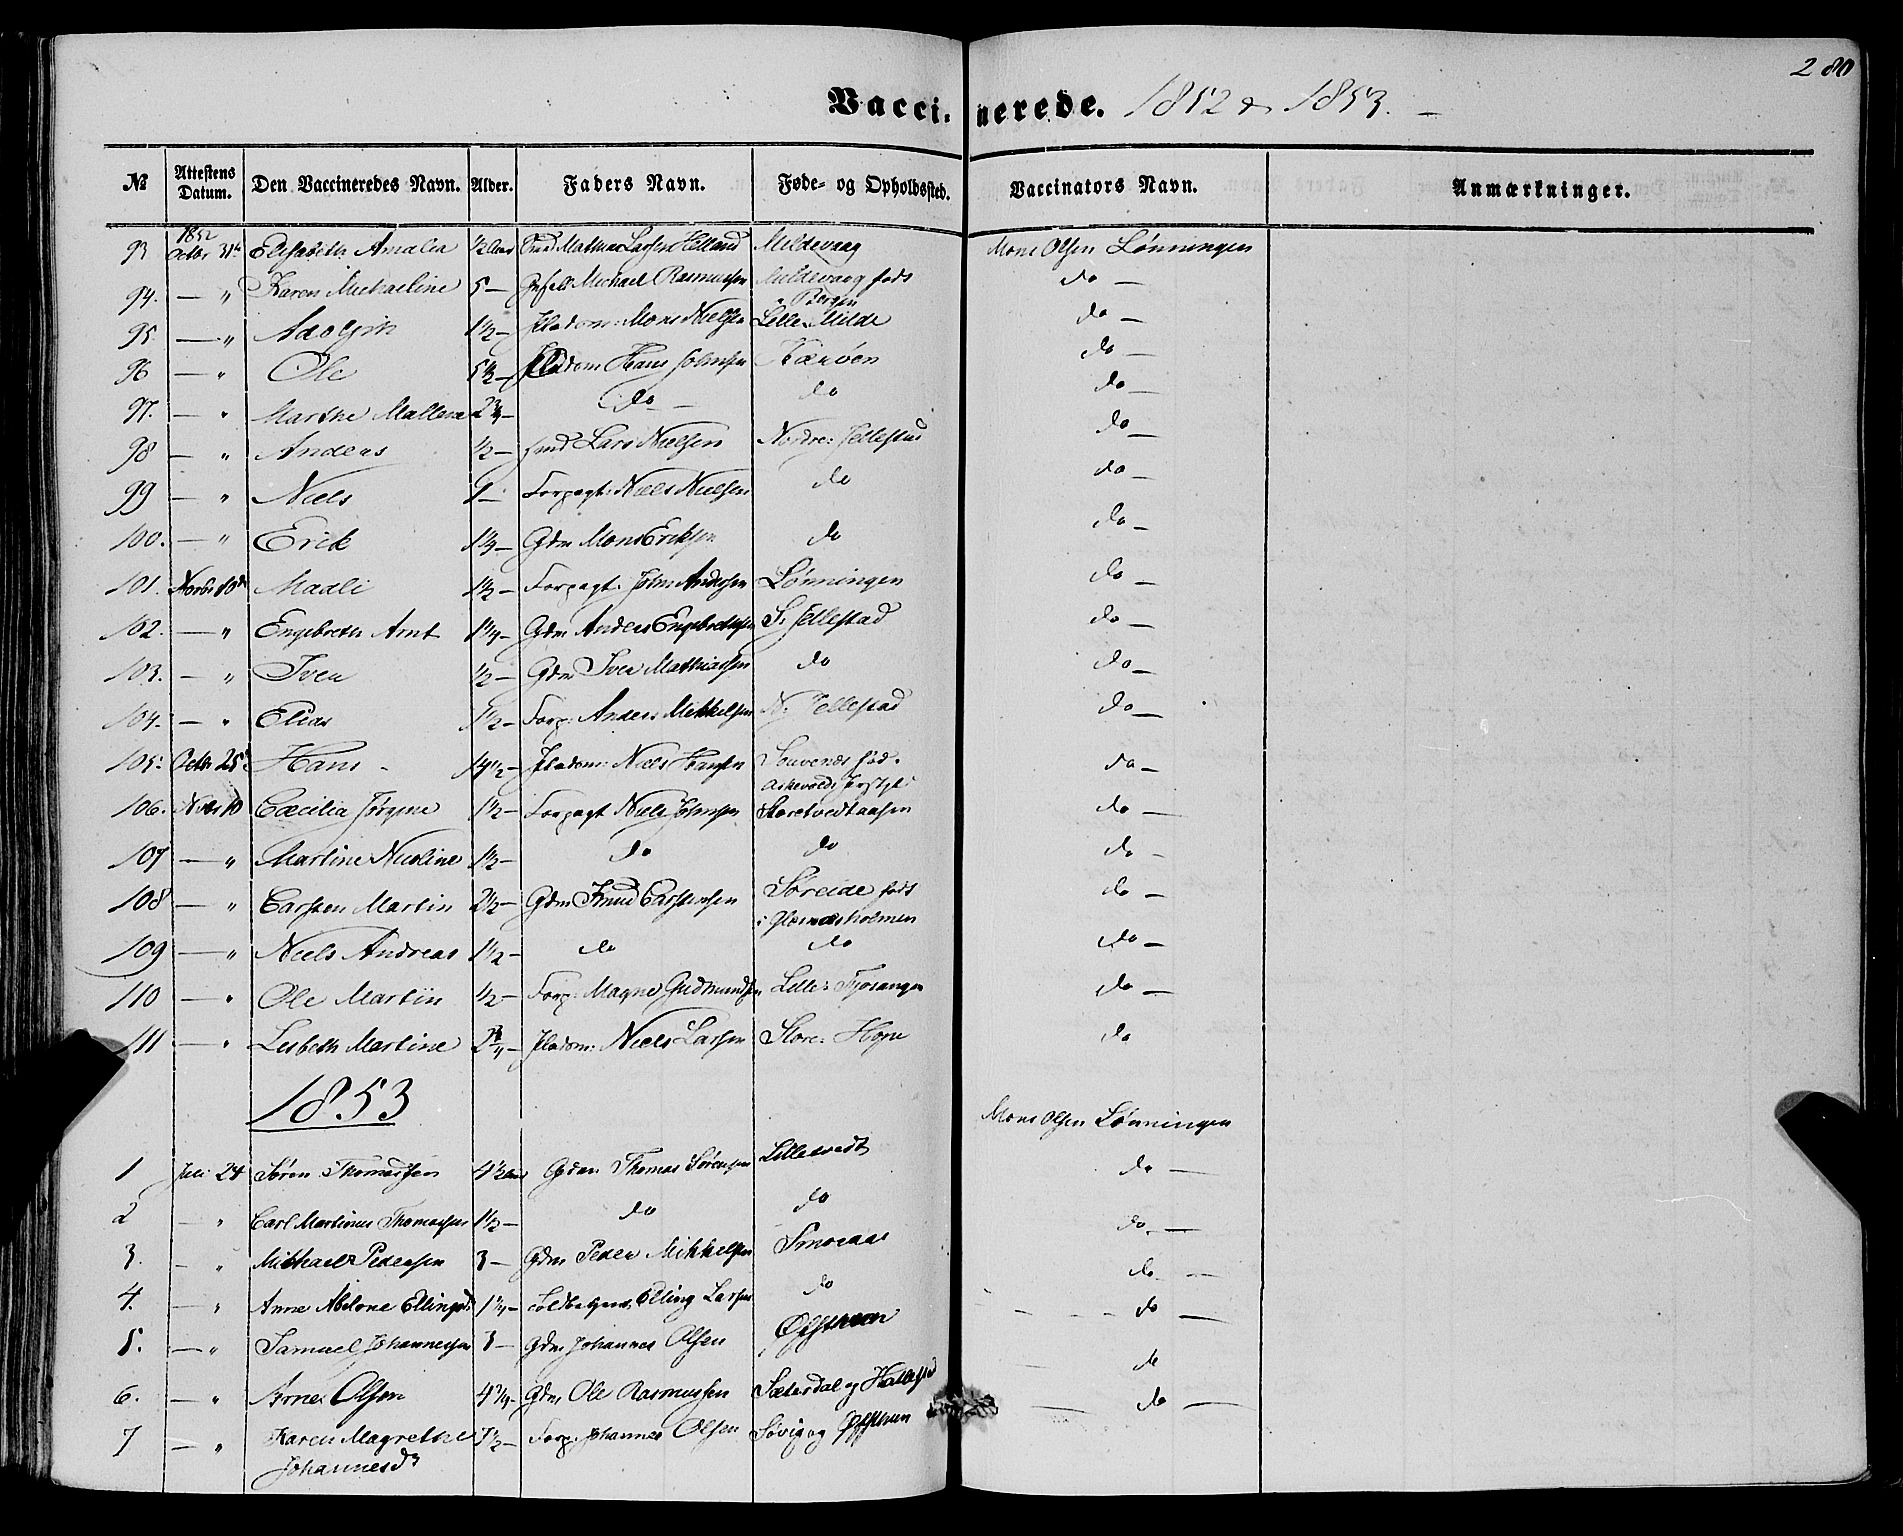 280
Vaccinerede. 1852 & 1853. —
№ Attestens Datum. Den Vaccineredes Navn. Alder. Faders Navn. Føde- og Opholdssted. Vaccinators Navn. Anmærkninger.
1852
93 Octbr 31te Elisabeth Amalia ½ Aar Larsen Helland Mildevaag Mons Olsen Lønningen
94. — " Karen Michaeline 5 — Michael Rasmussen Mildevaag født do —
i Bergen
95. — " 1½ — Pladsm: Mons Nielsen Lille Milde do —
96 — " Ole 5½ — Pladsm Hans Johnsen do —
97. — " Marthe Mallena 2¾ — do — do do —
98 — " Anders ½ — Lars Nielsen Nordre: Jellestad do —
99 — " Niels Forpagt: Niels Nielsen do do —
100. — " Erik 1¼ — Gdm Mons Eriksen do do —
101. Novbr 10de Maali 1½ — Forpagt: John Andersen Lønningen do —
102. — " Engebreth Arnt 1¼ — Gdm Anders Engebrethsen S. Jellestad do —
103. — " Iver ½ — Gdm Iver Mathiassen do do —
104. — " Elias 1½ — Forp: Anders Mikkelsen N: Jellestad do —
105: Octbr 25de Hans - 14½ — Pladsm: Niels Hansen fød. do —
Askevolds
106. Novbr 10 Cæcilia Jørgine 1½ — Forpagt Niels Johnsen Storetvedtaasen do —
107 — " Martine Nicoline 1½ — do do do —
108 — " Carsten Martin 2½ — Gdm Knud Carstensen Søreide født do —
i
109 — " Niels Andreas 1½ — do do do —
110 — " Ole Martin ½ — Forp: Magne Gudmundsen Lille: Fjøsanger do —
111 — " Lisbeth Martine 2¾ — Pladsm: Niels Larsen Store: Hope do
1853
Mons Olsen Lønningen
1 Juli 24 Søren Thomassen 4½ Aar Gdm: Thomas Sørensen Lilletvedt do —
2 — " Carl Martinus Thomassen 1½ — do do do —
3. — " Michael Pedersen 3 — Gdm Peder Mikkelsen Smøraas do —
4. — " Anne Abelone Ellingsd: 1¼ — Elling Larsen do do —
5. — " Samuel Johannessen 3 — Gdm Johannes Olsen Øfsthun do
6. — " Arne Olsen 4¼ — Gdm Ole Rasmussen Sæterdal og do —
7 — " Karen Magrethe 1½ — Forp: Johannes Olsen Søvig og Øfsthun
Johannesd: